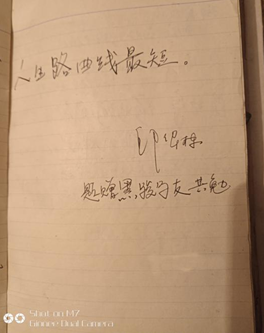 人生路曲线最短。
邱
题赠黑骏马友共勉
Shot on M7
Gionee Dual Camera